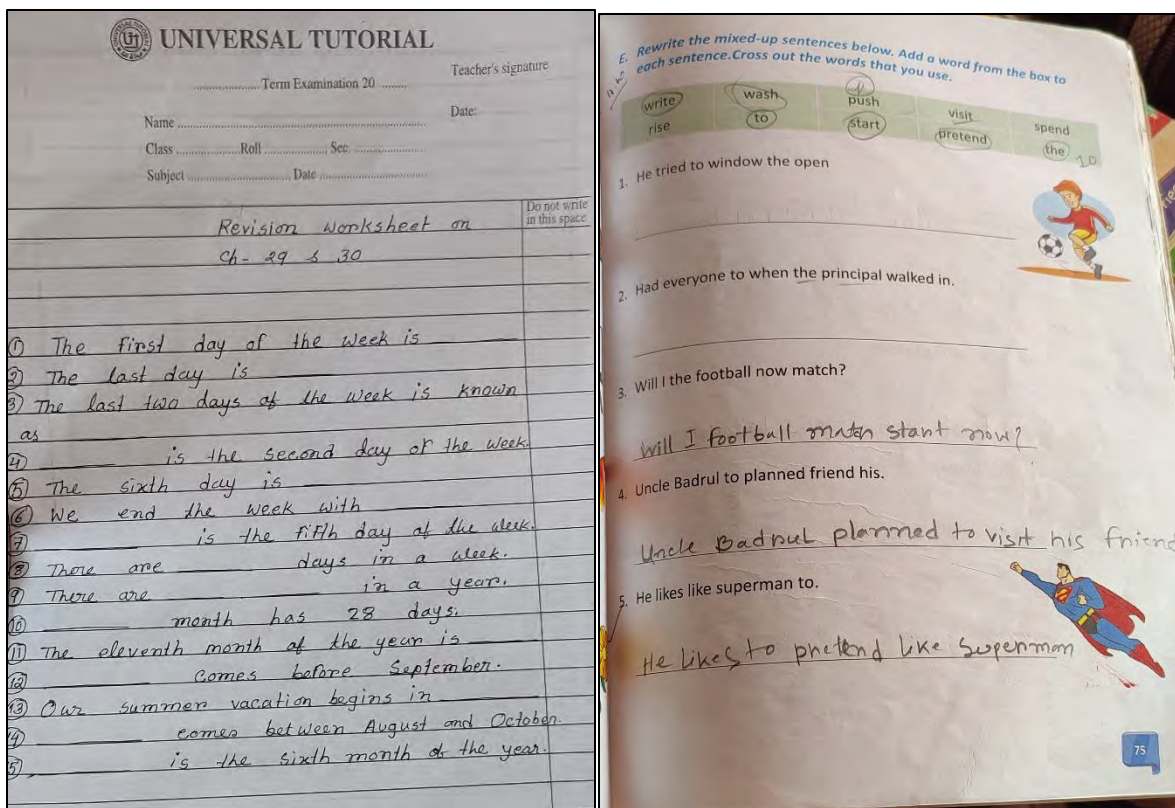 UNIVERSAL TUTORIAL
Teacher's signature
.................... Term Examination 20 ........
Date:
Name ....................
Class .................... Roll .................... Sec. ....................
Subject .................... Date ....................
Do not write
in this space
Revision worksheet on
Ch- 29 & 30
① The first day of the week is ________
② The last day is ________
③ The last two days of the week is known
as ________
④ ________ is the second day of the week.
⑤ The sixth day is ________
⑥ We end the week with ________
⑦ ________ is the fifth day of the week.
⑧ There are ________ days in a week.
⑨ There are ________ in a year.
⑩ ________ month has 28 days.
⑪ The eleventh month of the year is ________
⑫ ________ comes before September.
⑬ Our summer vacation begins in ________
⑭ ________ comes between August and October.
⑮ ________ is the sixth month of the year.
E. Rewrite the mixed-up sentences below. Add a word from the box to
each sentence.Cross out the words that you use.
write wash push visit spend
rise to start pretend the
1. He tried to window the open
2. Had everyone to when the principal walked in.
3. Will I the football now match?
Will I football match start now?
4. Uncle Badrul to planned friend his.
Uncle Badrul planned to visit his friend
5. He likes like superman to.
He likes to pretend like Superman
75